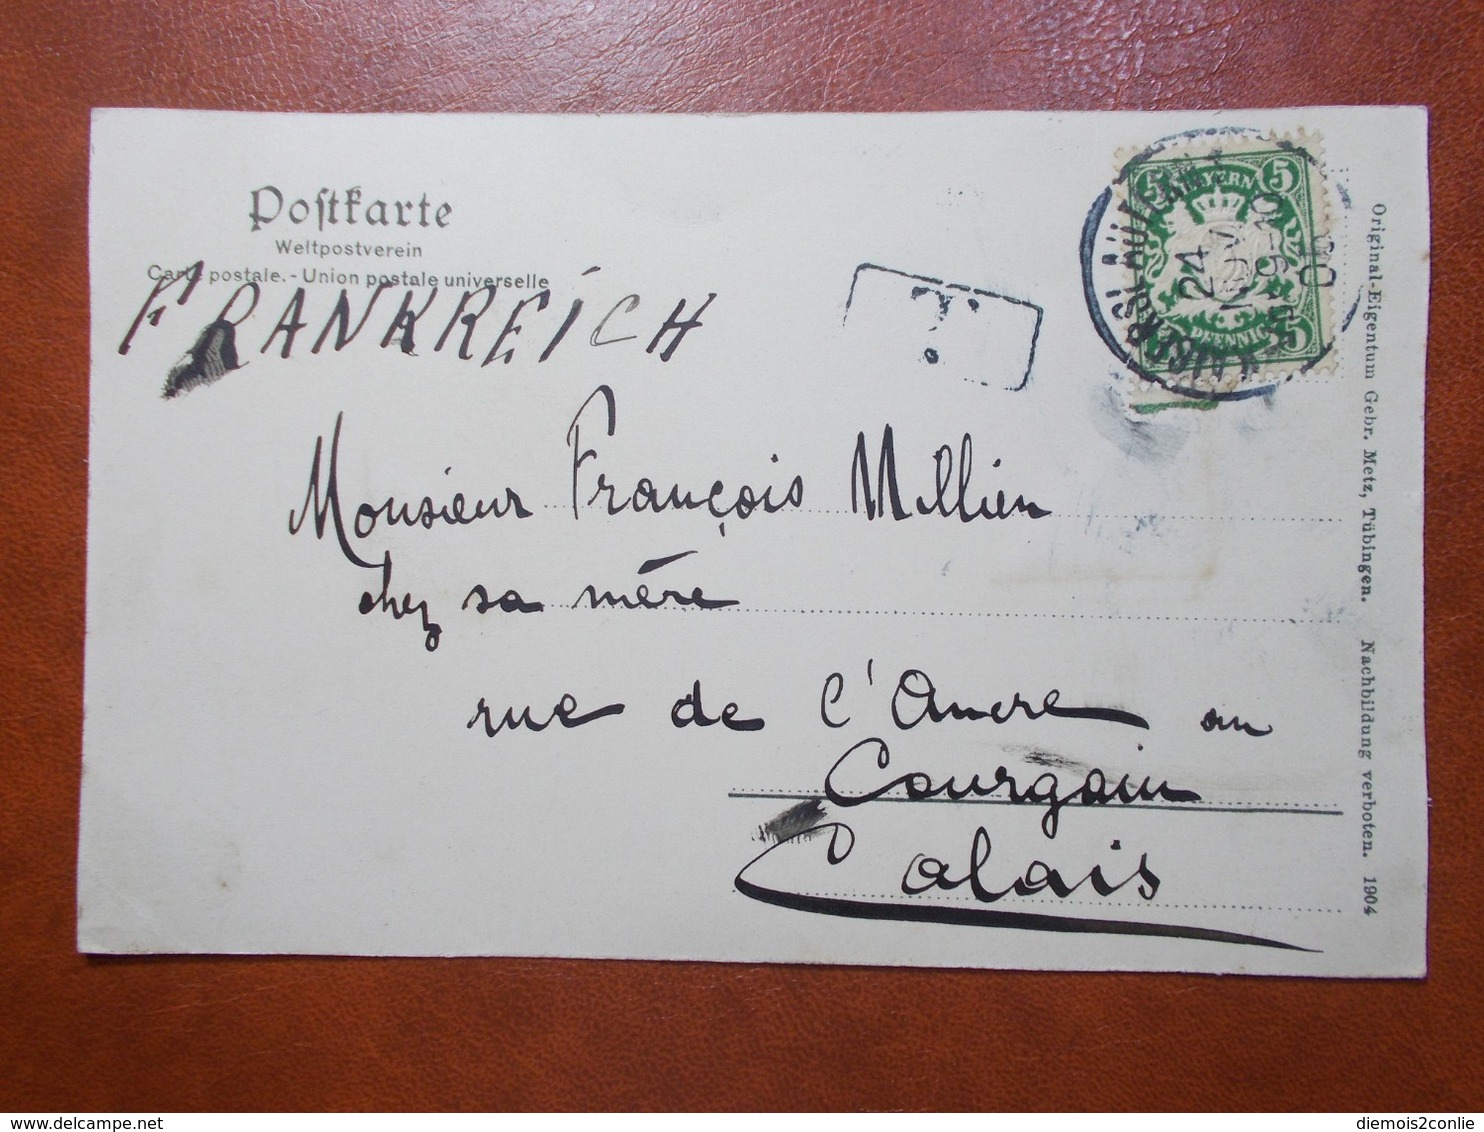 Postkarte
Weltpostverein
Carte postale. - Union postale universelle
FRANKREICH
T.
BAYERN
5 5
5
PFENNIG
KAISERSLAUTERN
24
9-10
Monsieur François Millien
chez sa mère
rue de l'Ancre au
Courgain
Calais
Original-Eigentum Gebr. Metz, Tübingen. Nachbildung verboten. 1904
diemois2conlie